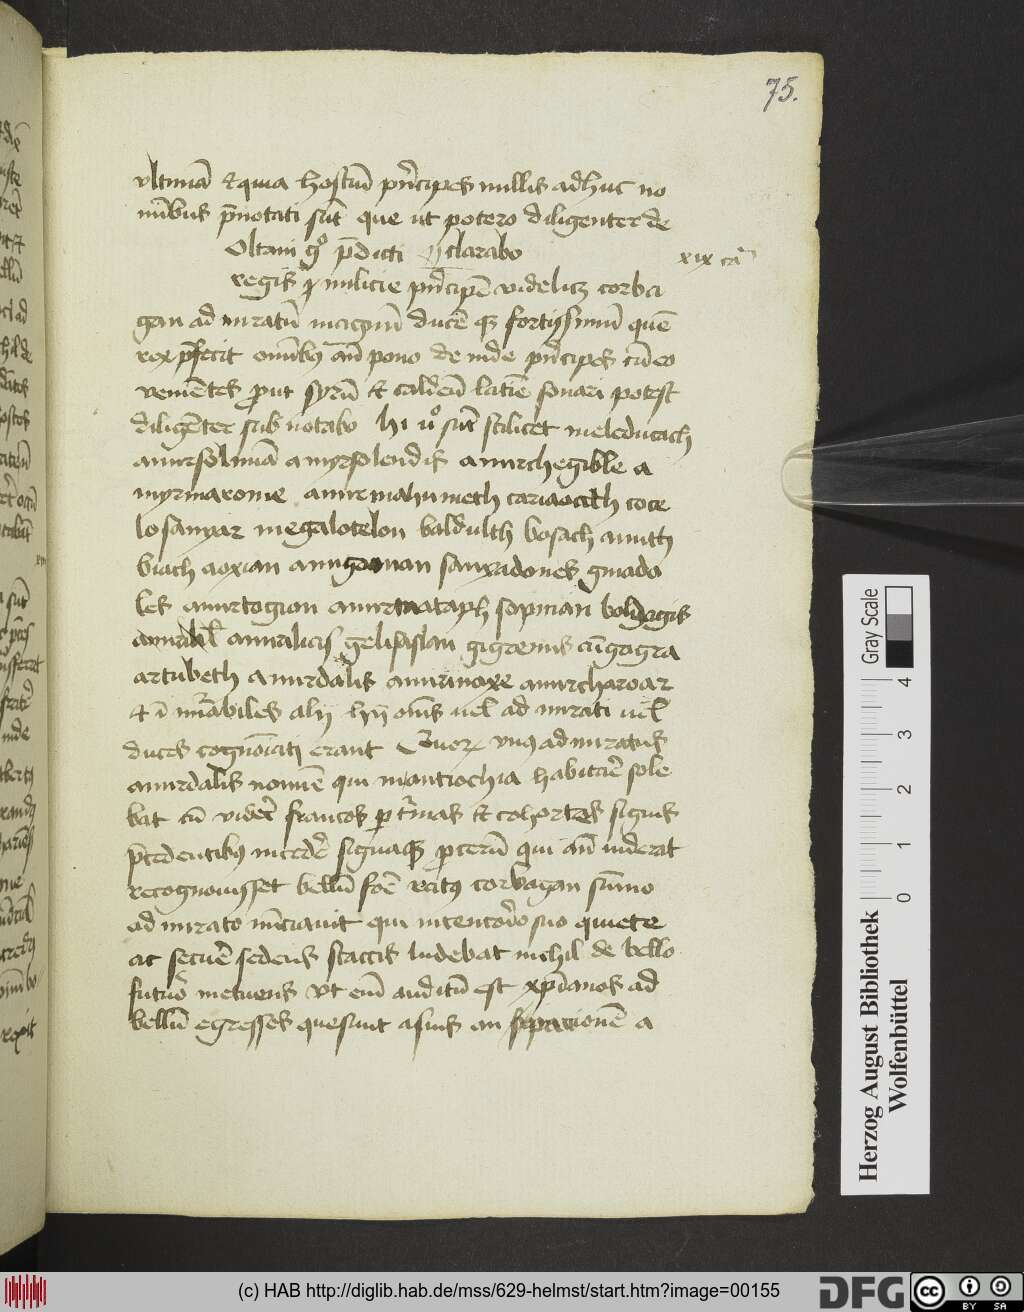 75.
vltimā et quia hostiū prīcipes nullis adhuc no
minibus p̄notati sūt que ut potero diligenter de
Oltani gͦ p̄dicti clarabo
xix cā
regis milicie prīcipē videlicz corba
gan ad miratū magnū ducē fortissimū quē
rex p̄fecit oīnibus pono de inde prīcipes cū eo
venientes prout syrū et caldeū latīe sonari potest
diligēter sub notabo hi uͦ sūt scilicet meleducach
amirsolimā amyrsolendis amirchegible a
myrmaxome amirmahumeth cariaoth coce
losanyar megalotelon baldulth bosach amith
biach aoxian amigdonan samxadomes gmado
les amirtogion amirmataph sopman boldagis
amirdal amralicis gelisaslan gigremis cūgogra
artubeth amirdalis amirmoxe amircharoar
et ī mīabiles alij hij oms uel ad mirati uel
duces cognoīati erant Quorz vnus ad miratus
amirdalis nomīe qui in antiochia habitare sole
bat cū videt francos p turmas et cohortes signis
p̄cedentibus incedē signaqz procerū qui an uiderat
recognouisset bellū foē ratus corbagan sūmo
ad mirato nūciauit qui in tentorio suo quiete
ac secure sedens scaccis ludebat nichil de bello
futuro metuens vt eū auditū est xp̄ianos ad
bellū egresses quesiuit a suis an seperacionē a
Gray Scale
0 1 2 3 4
Herzog August Bibliothek
Wolfenbüttel
(c) HAB http://diglib.hab.de/mss/629-helmst/start.htm?image=00155
DFG
cc
BY SA